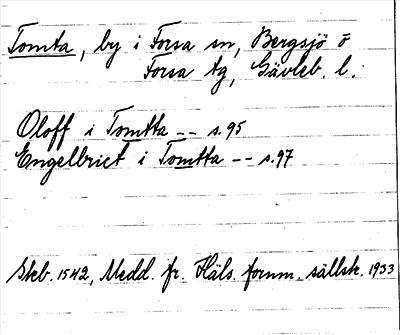 Tomta, by i Forsa sn, Bergsjö o
Forsa tg, Gävleb. l.
Oloff i Tomtta -- s. 95
Engelbrict i Tomtta -- s. 97
Skb. 1542, Medd. fr. Häls. fornm. sällsk. 1933